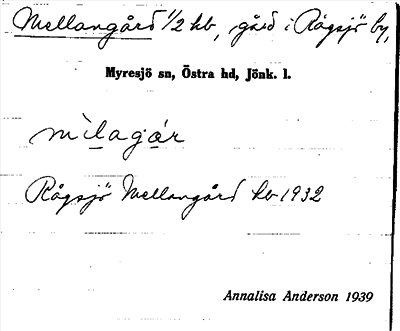 Mellangård 1/2 hb, gård i Rågsjö by,
Myresjö sn, Östra hd, Jönk. l.
mìlagár
Rågsjö Mellangård hb 1932
Annalisa Anderson 1939